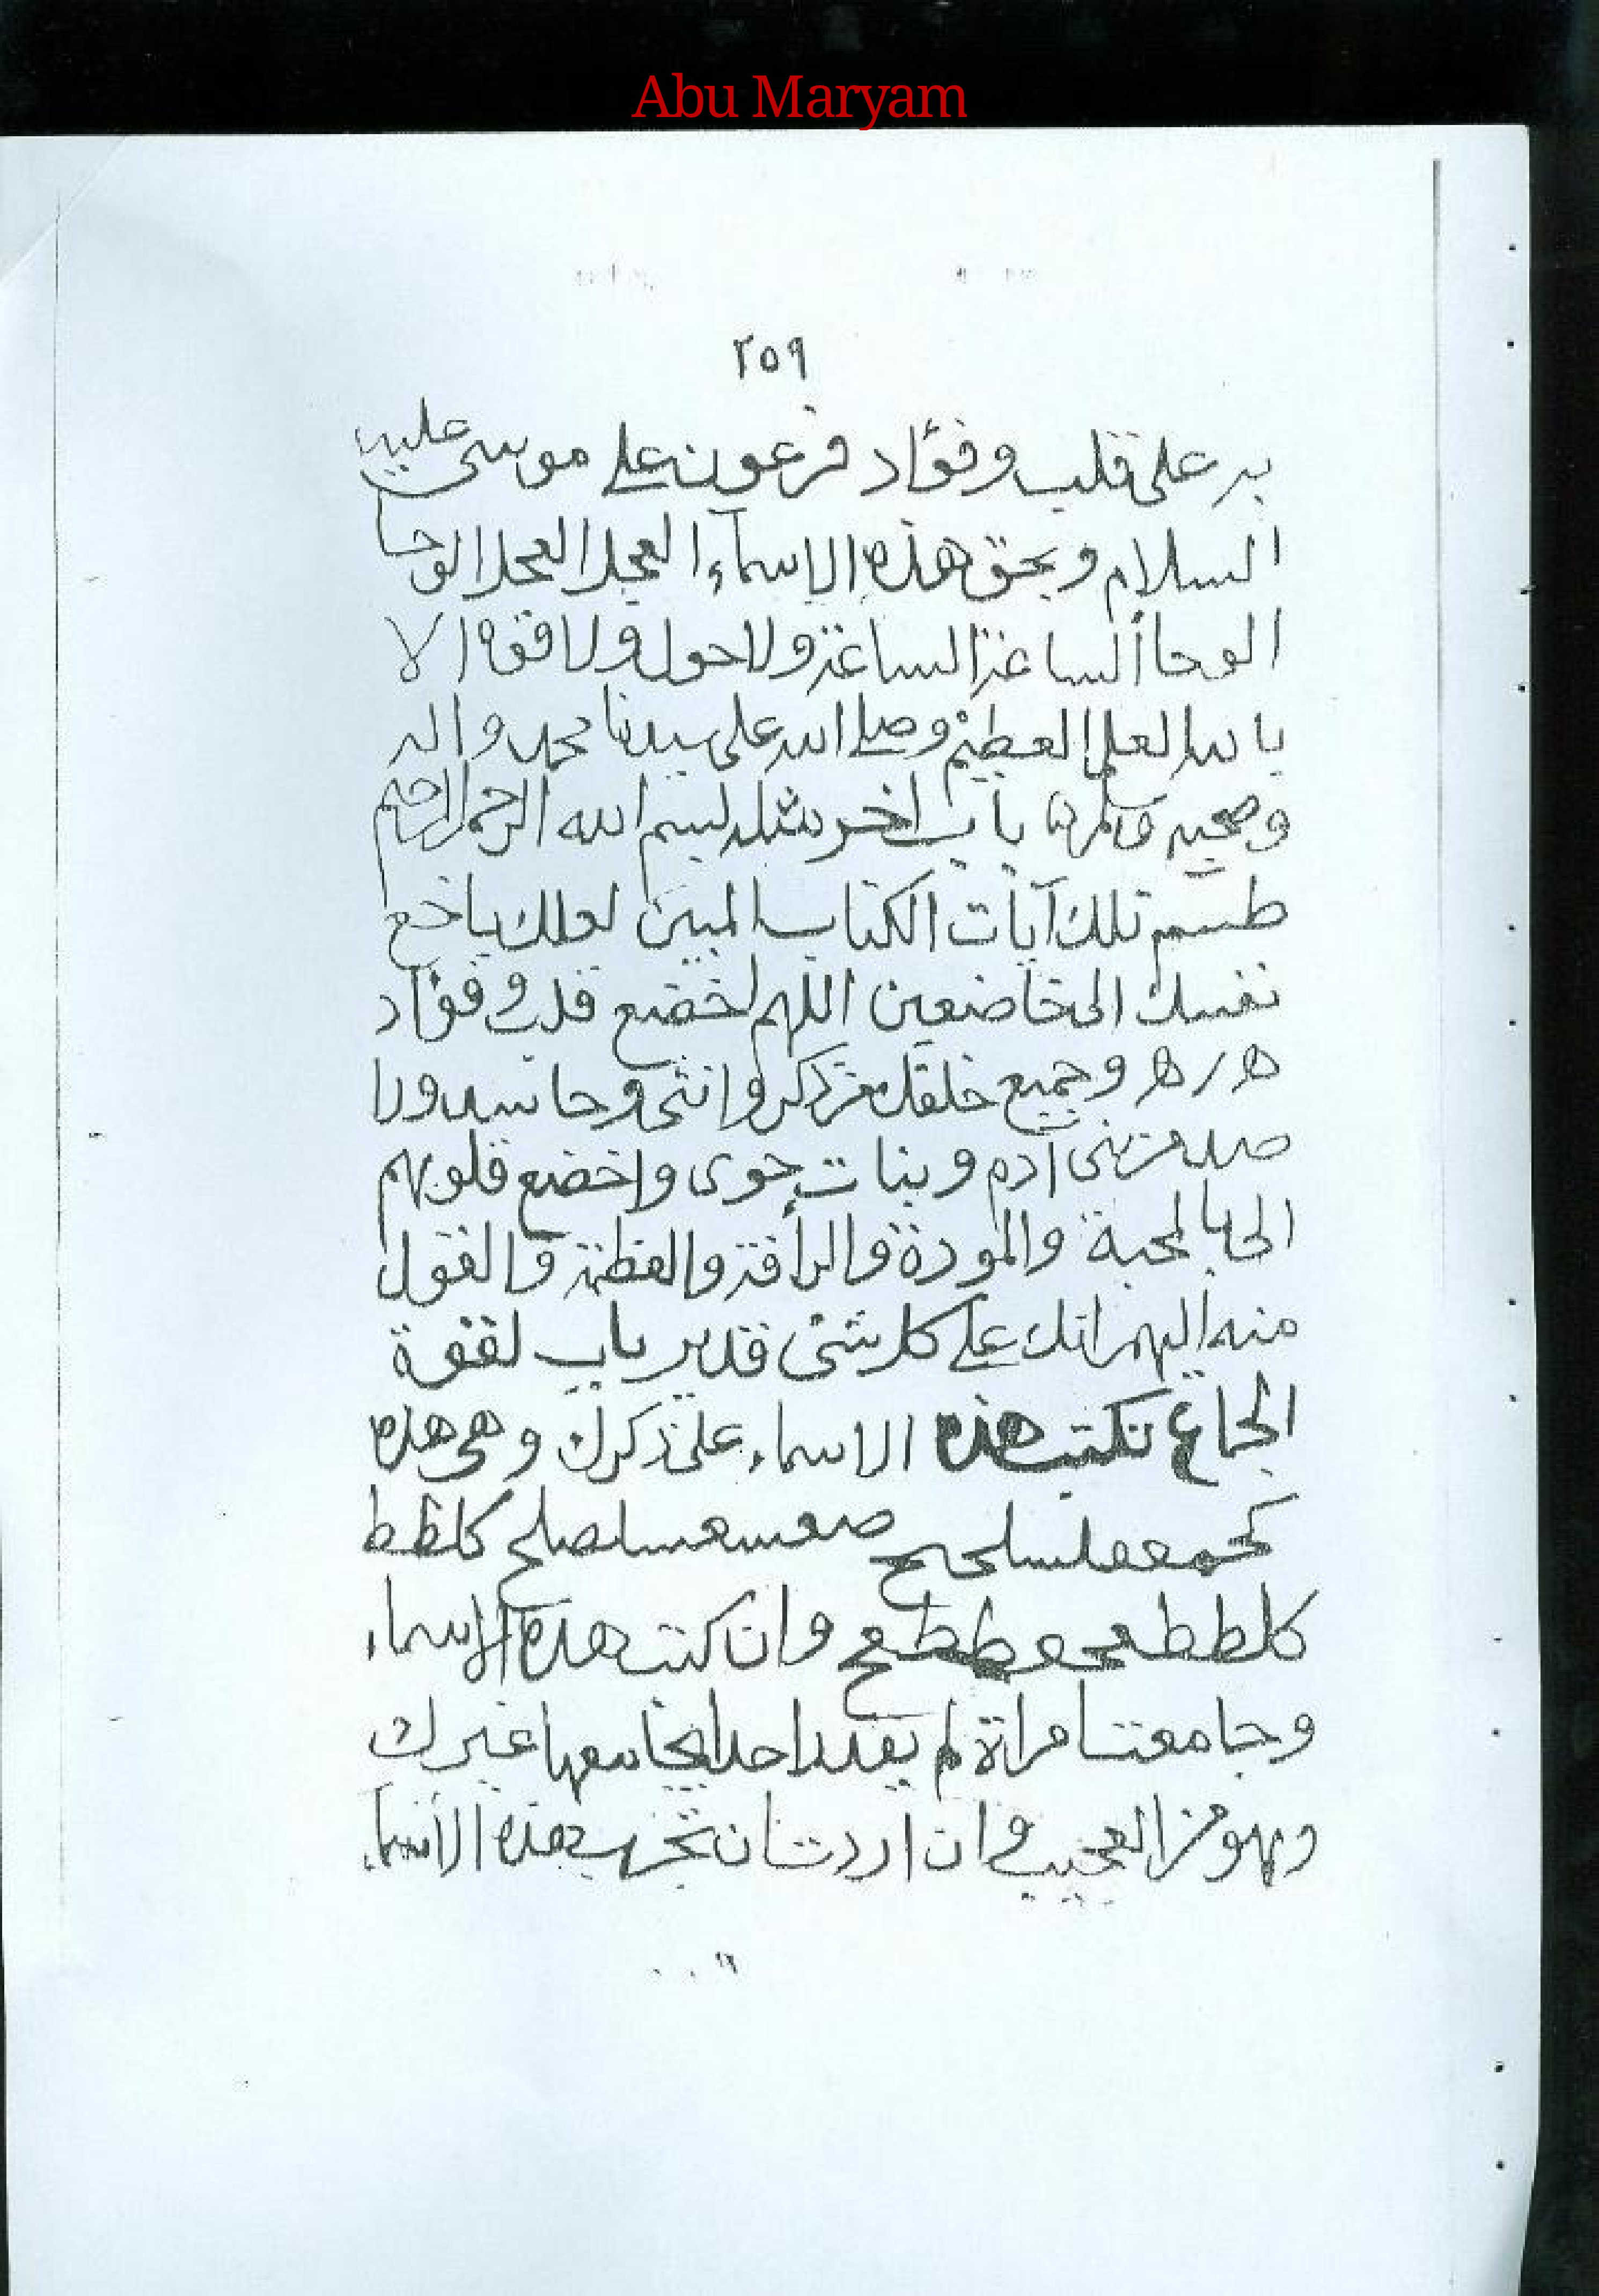 Abu Maryam
٢٥٩
به على قلب وفؤاد فرعون على موسى عليه
السلام وبحق هذه الاسماء العجل العجل الوحا
الوحا الساعة الساعة ولا حول ولا قوة الا
بالله العلي العظيم وصلى الله على سيدنا محمد واله
وصحبه وسلم باب اخر مثله بسم الله الرحمن الرحيم
طسم تلك آيات الكتاب المبين لعلك باخع
نفسك الى خاضعين اللهم اخضع قلب وفؤاد
وجميع خلقك من ذكر وانثى وحاسد ورا
صد من بنى آدم وبنات حوى واخضع قلوبهم
الى بالمحبة والمودة والرأفة والعظمة والقول
منه اليهم انك على كل شئ قدير باب لقوة
الجماع تكتب هذه الاسماء على ذكرك وهي هذه
كلطط
وان كتبت هذه الاسماء
وجامعت امراة لم يقدر احد ان يجامعها غيرك
وهو من العجيب وان اردت ان تجرب هذه الاسماء